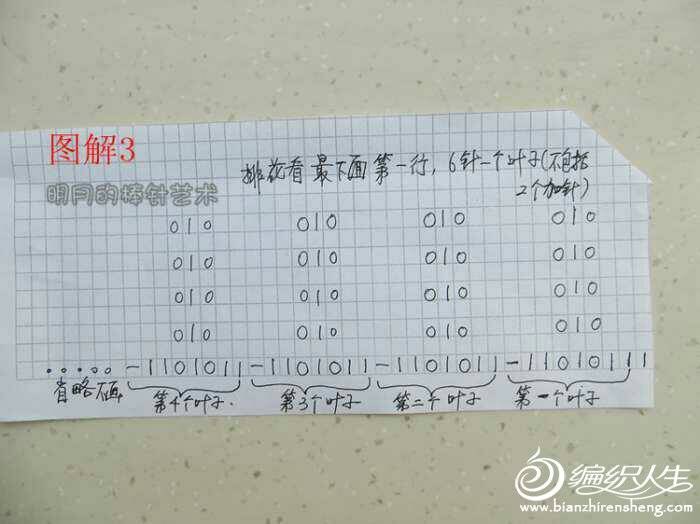 图解3
排花看最下面第一行,6针一个叶子(不包括
2个加针)
明月的棒针艺术
010 010 010 010
010 010 010 010
010 010 010 010
010 010 010 010
..... -1101011 -1101011 -1101011 -11010111
省略不画 第4个叶子. 第3个叶子 第二个叶子 第一个叶子
编织人生
www.bianzhirensheng.com